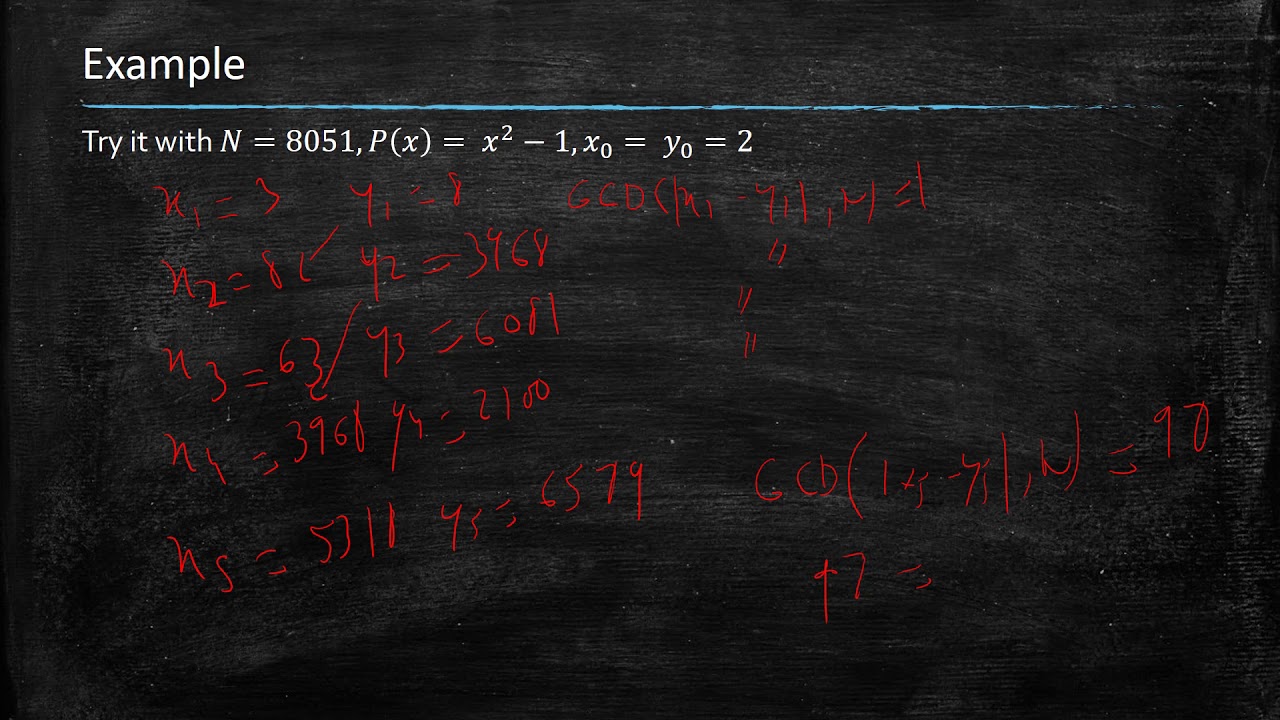 Example
Try it with N = 8051, P(x) = x² − 1, x₀ = y₀ = 2
x₁ = 3 y₁ = 8 GCD(|x₁ - y₁|, N) = 1
x₂ = 8 y₂ = 3968 〃
〃
x₃ = 63 / y₃ = 6081 〃
x₄ = 3968 y₄ = 2100
GCD(|x₅ - y₅|, N) =
x₅ = 5318 y₅ = 6579